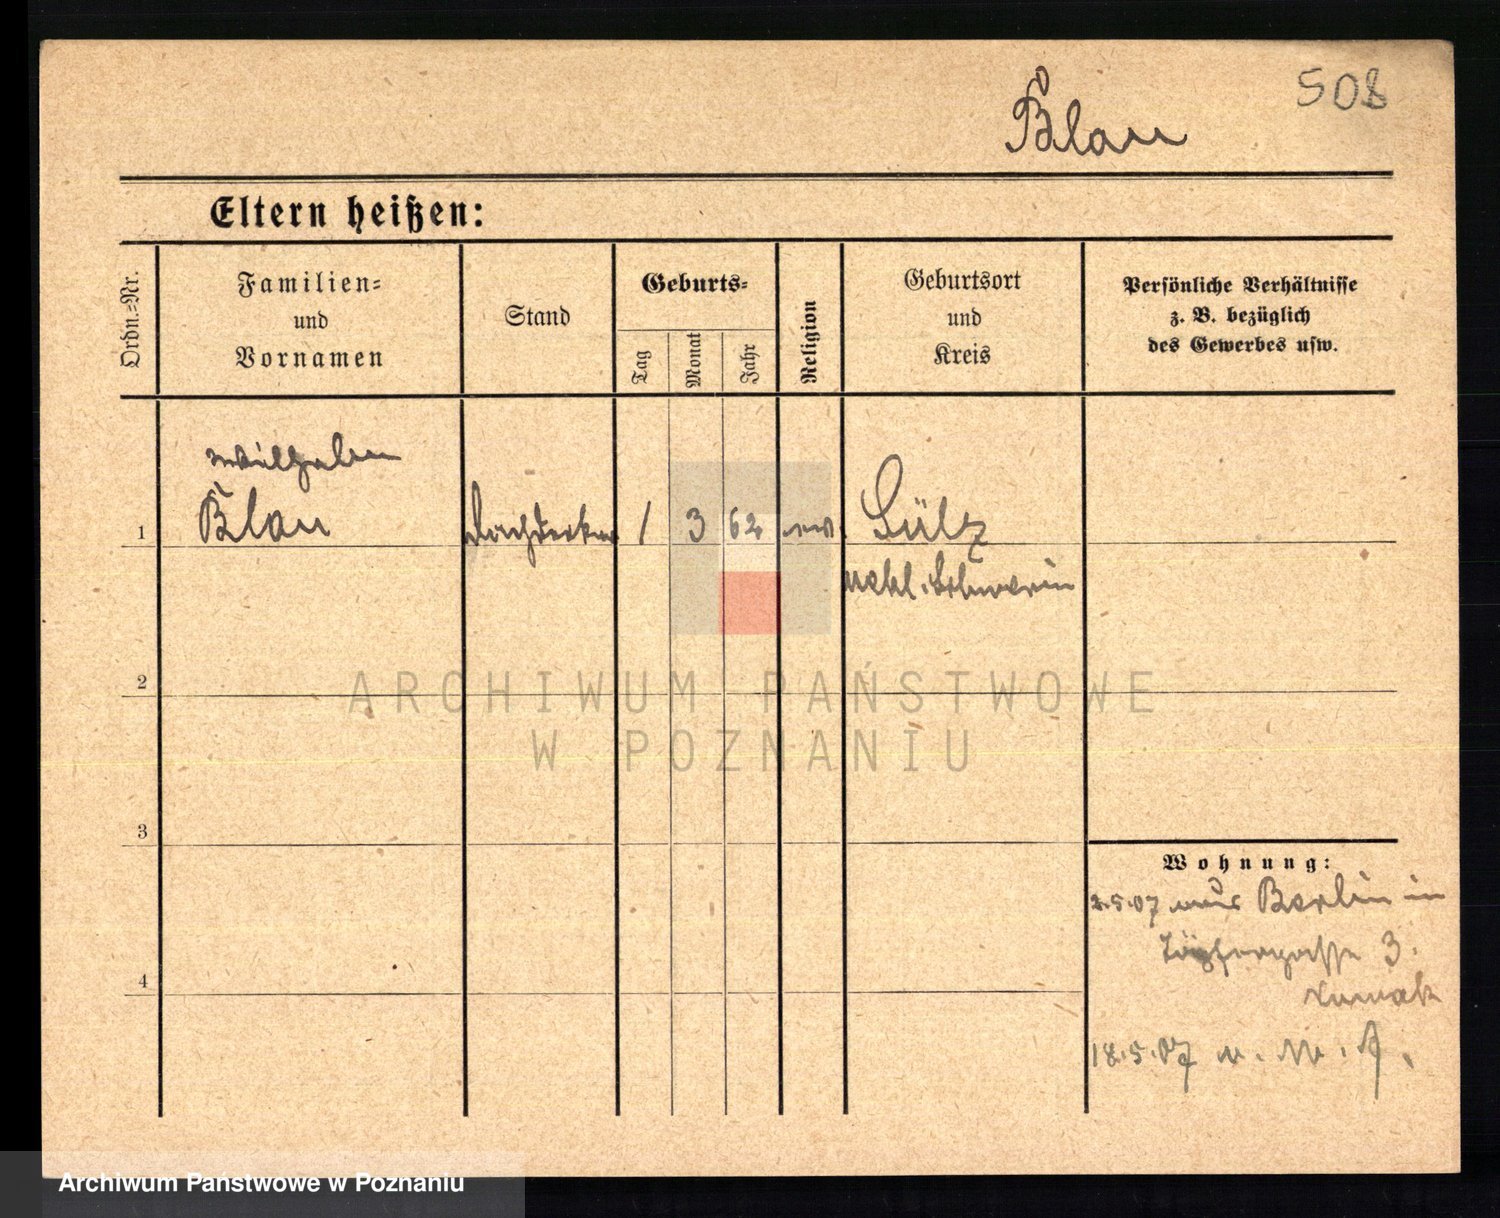 508
Blau
Eltern heißen:
Ordn.-Nr.
Familien-
und
Vornamen
Stand
Geburts-
Tag
Monat
Jahr
Religion
Geburtsort
und
Kreis
Persönliche Verhältnisse
z. B. bezüglich
des Gewerbes usw.
Wilhelm
1 Blau Dachdecker 1 3 62 Lülz
Schwerin
2
3
4
Wohnung:
2.5.07 aus Berlin in
Töpfergasse 3.
Nowak
18.5.07 n.
ARCHIWUM PAŃSTWOWE
W POZNANIU
Archiwum Państwowe w Poznaniu